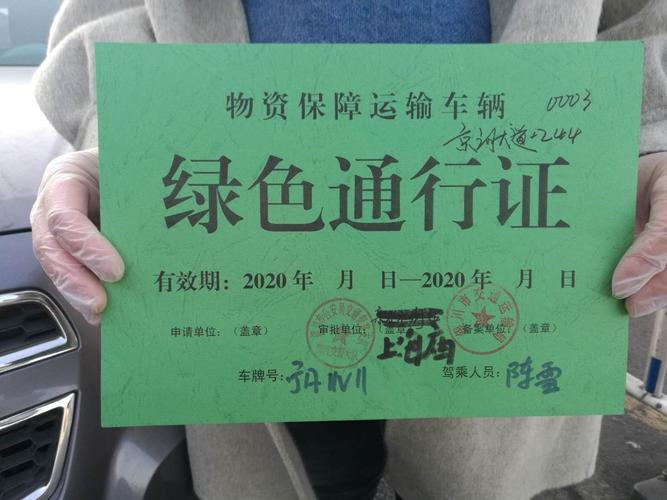 物资保障运输车辆 0003
京河大道-244
绿色通行证
有效期：2020年 月 日—2020年 月 日
申请单位：（盖章） 审批单位：（盖章） 备案单位：（盖章）
车牌号： 驾乘人员：陈雪